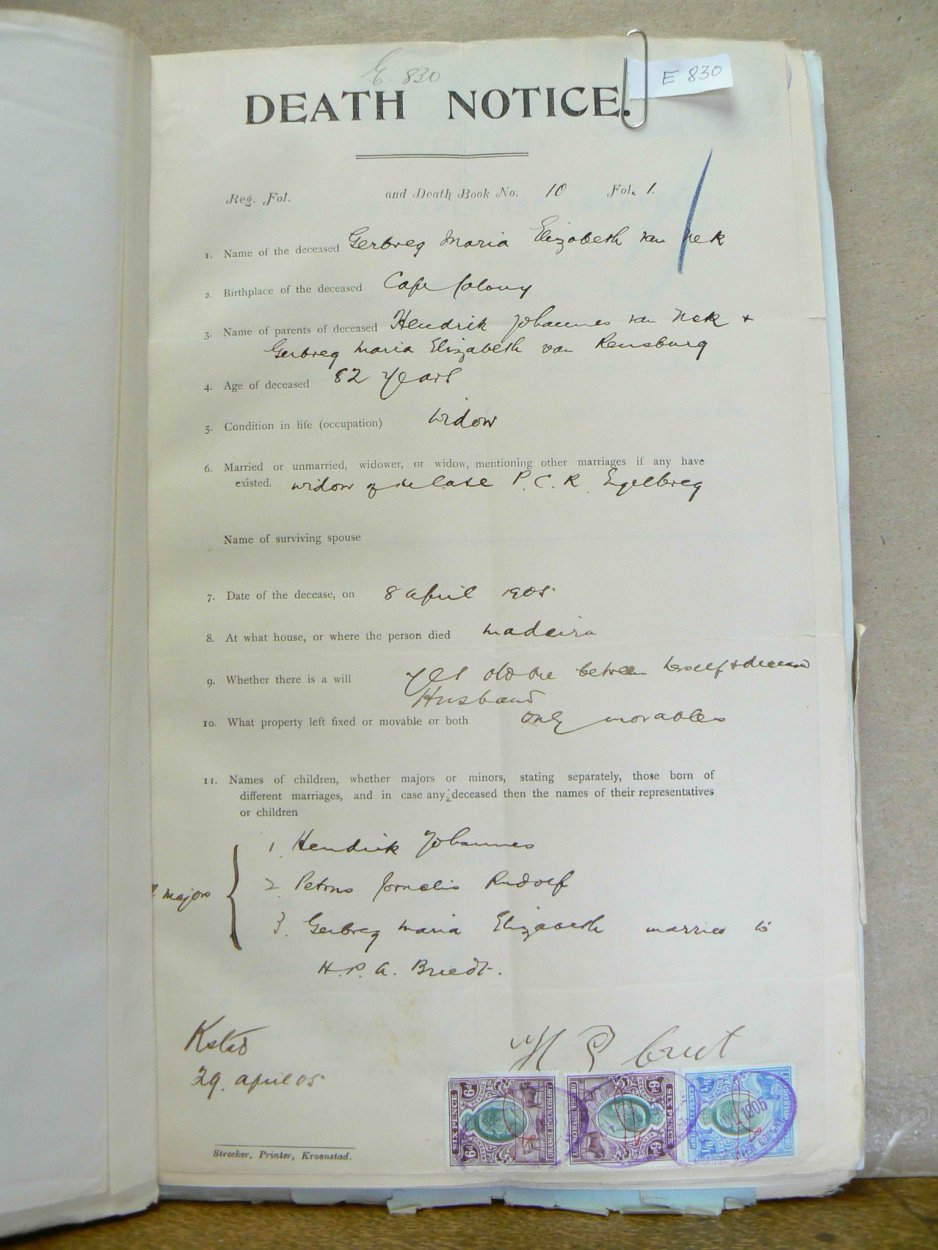 E. 830
E 830
DEATH NOTICE.
Reg. Fol. and Death Book No. 10 Fol. 1.
1. Name of the deceased Gerbreg Maria Elizabeth van Nek
2. Birthplace of the deceased Cape Colony
3. Name of parents of deceased Hendrik Johannes van Nek +
Gerbreg Maria Elizabeth van Rensburg
4. Age of deceased 82 years
5. Condition in life (occupation) Widow
6. Married or unmarried, widower, or widow, mentioning other marriages if any have
existed. widow of the late P. C. R. Engelbreg
Name of surviving spouse
7. Date of the decease, on 8 April 1905
8. At what house, or where the person died Madeira
9. Whether there is a will Yes between herself +
Husband
10. What property left fixed or movable or both only movables
11. Names of children, whether majors or minors, stating separately, those born of
different marriages, and in case any deceased then the names of their representatives
or children
1. Hendrik Johannes
majors
2. Petrus Cornelis Rudolf
3. Gerbreg Maria Elizabeth married to
H. P. A. Briedt.
Kstad
29. April 05
Strecker, Printer, Kroonstad.
SIX PENCE 6d ORANGE RIVER COLONY
SIX PENCE 6d
1905